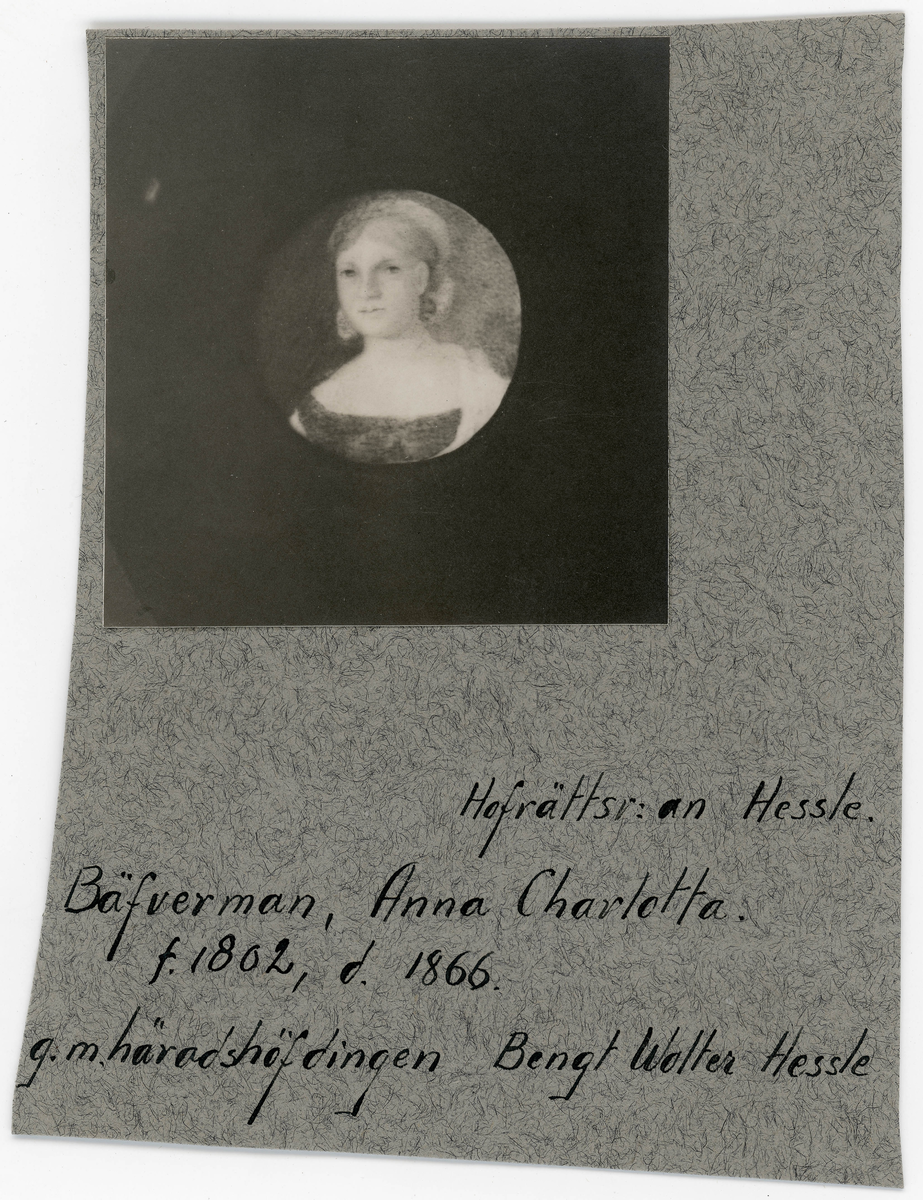 Hofrättsr:an Hessle.
Bäfverman, Anna Charlotta.
f. 1802, d. 1866.
g. m. häradshöfdingen Bengt Wolter Hessle